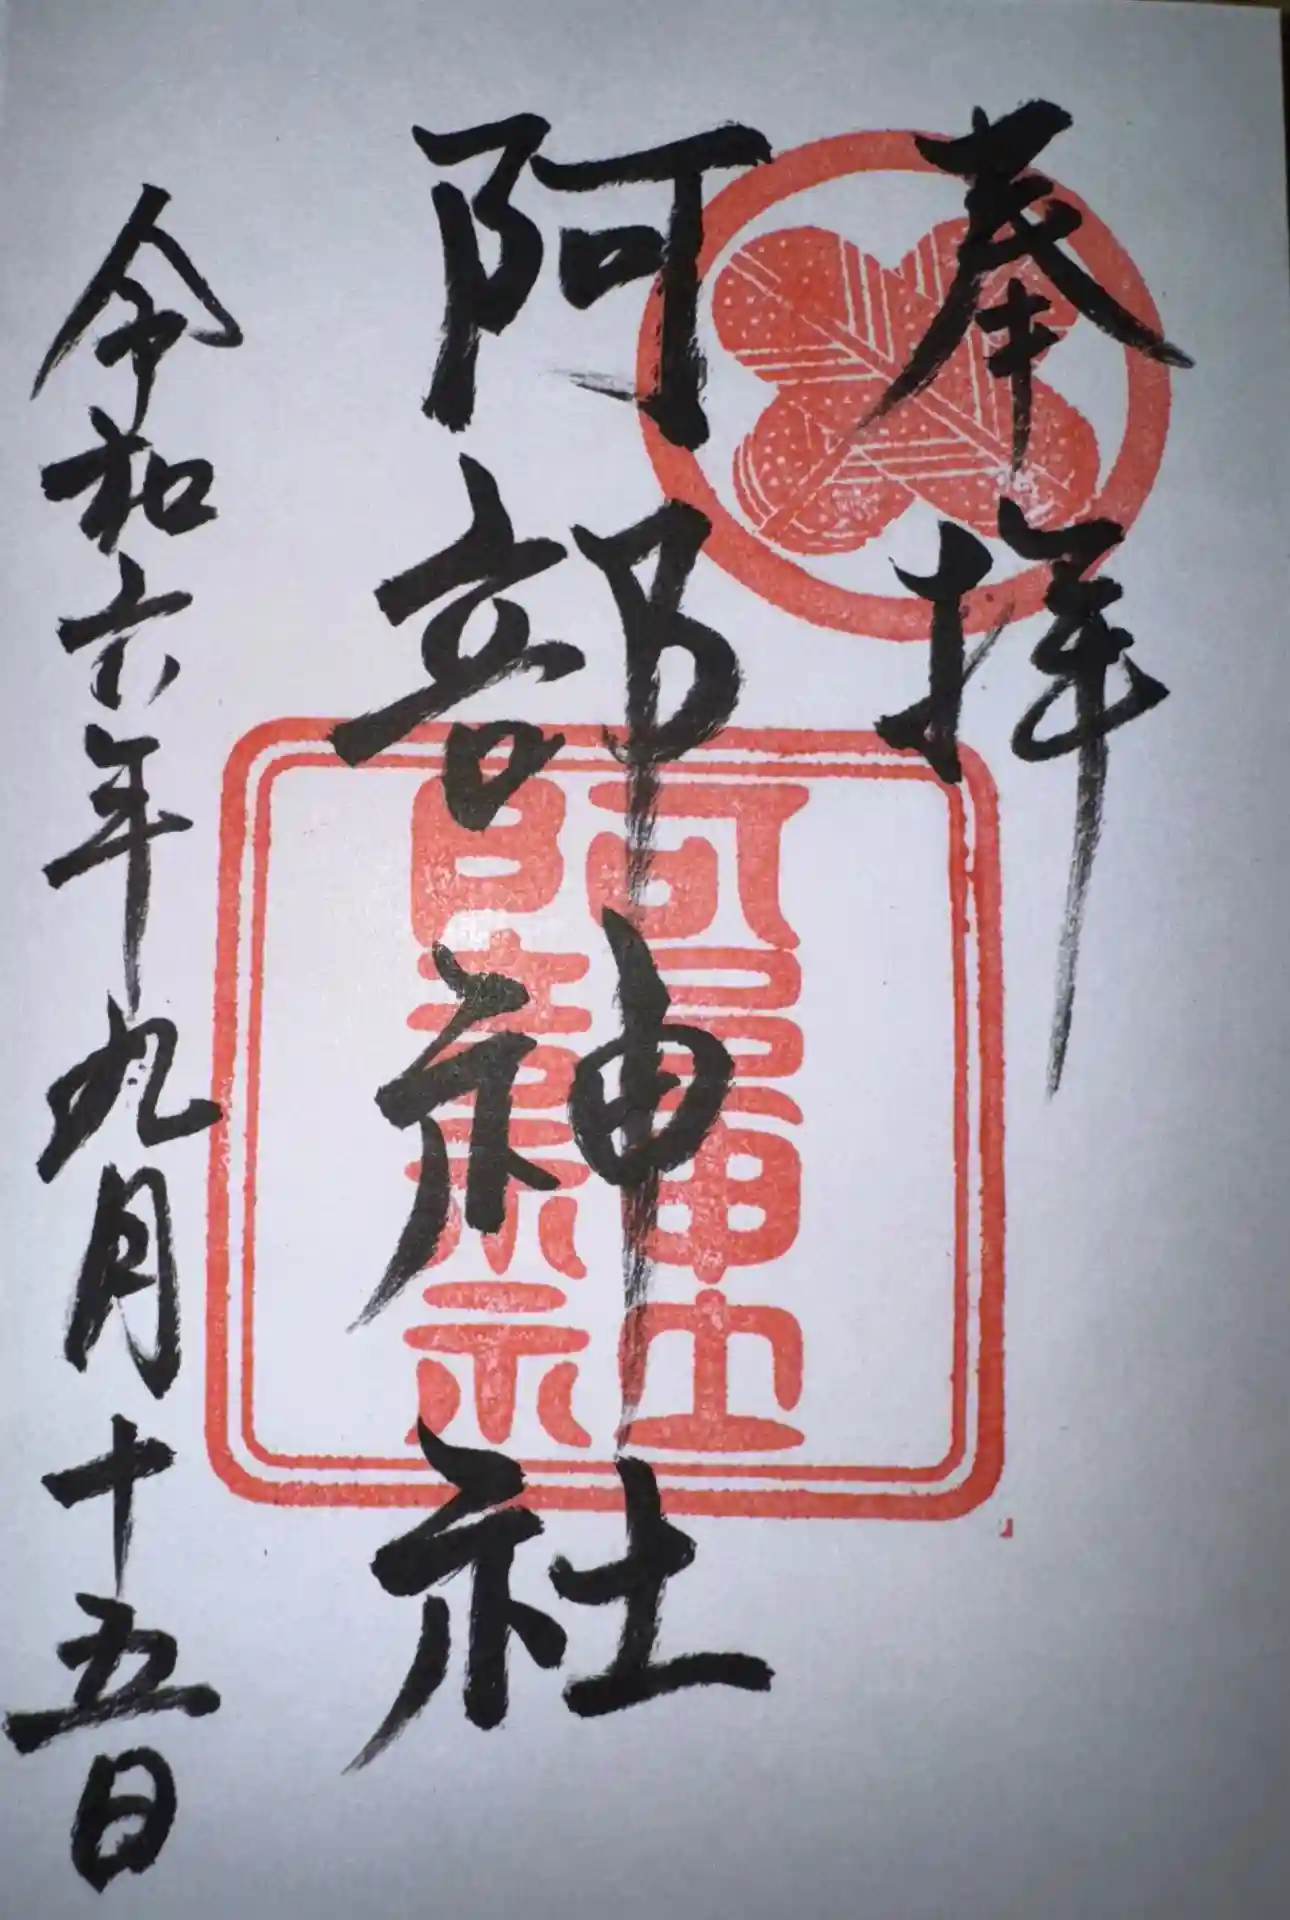 奉拝
阿部神社
阿部神社
令和六年九月十五日